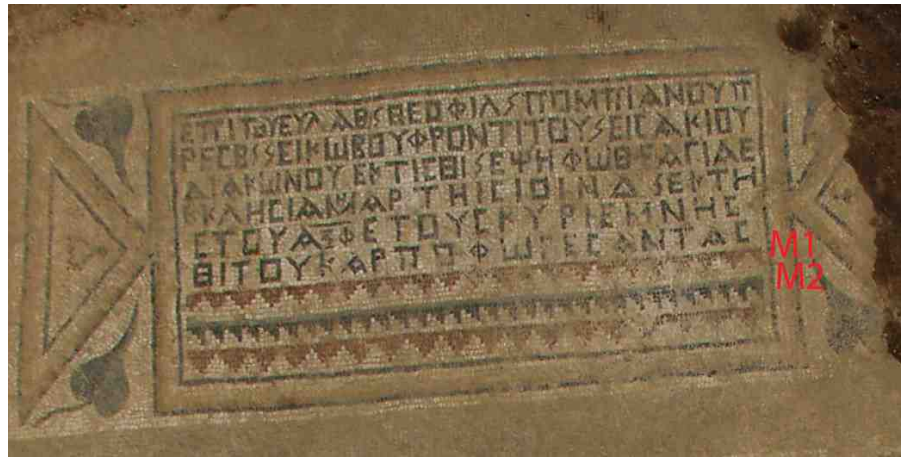 ΕΠΙΤΟΥΕΥΛΑΒSΘΕΟΦΙΛSΠΟΜΠΙΑΝΟΥΠ
ΡΕСΒSSΕΙΚΩΒΟΥΦΡΟΝΤΙΤΟΥSΕΙСΑΚΙΟΥ
ΔΙΑΚΩΝΟΥΕΚΤΙСΘΙSΕΨΗΦΩΘΕΑΓΙΑΕ
ΕΚΛΗСΙΑΜΑΡΤΗΙСΙΟΙΝΔSΕΚΤΗ
СΤΟΥΑΞΦΕΤΟΥСΚΥΡΙΕΜΝΗС
ΘΙΤΟΥΚΑΡΠΠΦΩΡΕСΑΝΤΑС
M1
M2